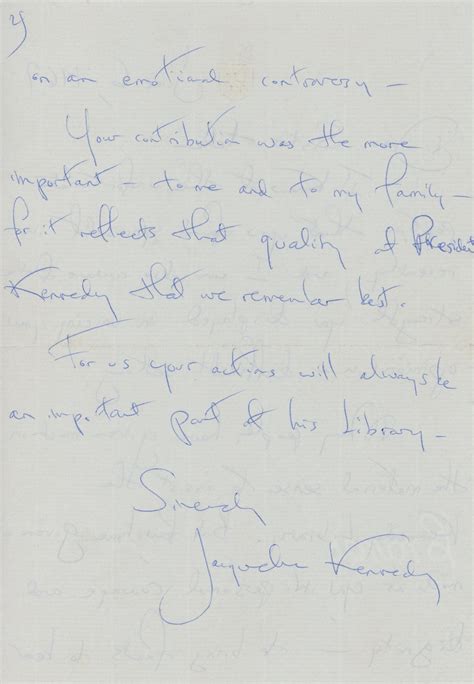 2)
on an emotional controversy —
Your contribution was the more
important — to me and to my family —
for it reflects that quality of President
Kennedy that we remember best.
For us your actions will always be
an important part of his Library —
Sincerely
Jacqueline Kennedy